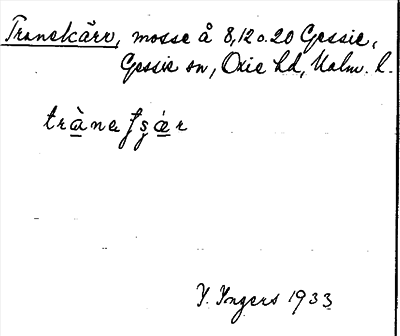 Tranekärr, mosse å 8, 12 o. 20 Gessie,
Gessie sn, Oxie hd, Malm. l.
I. Ingers 1933